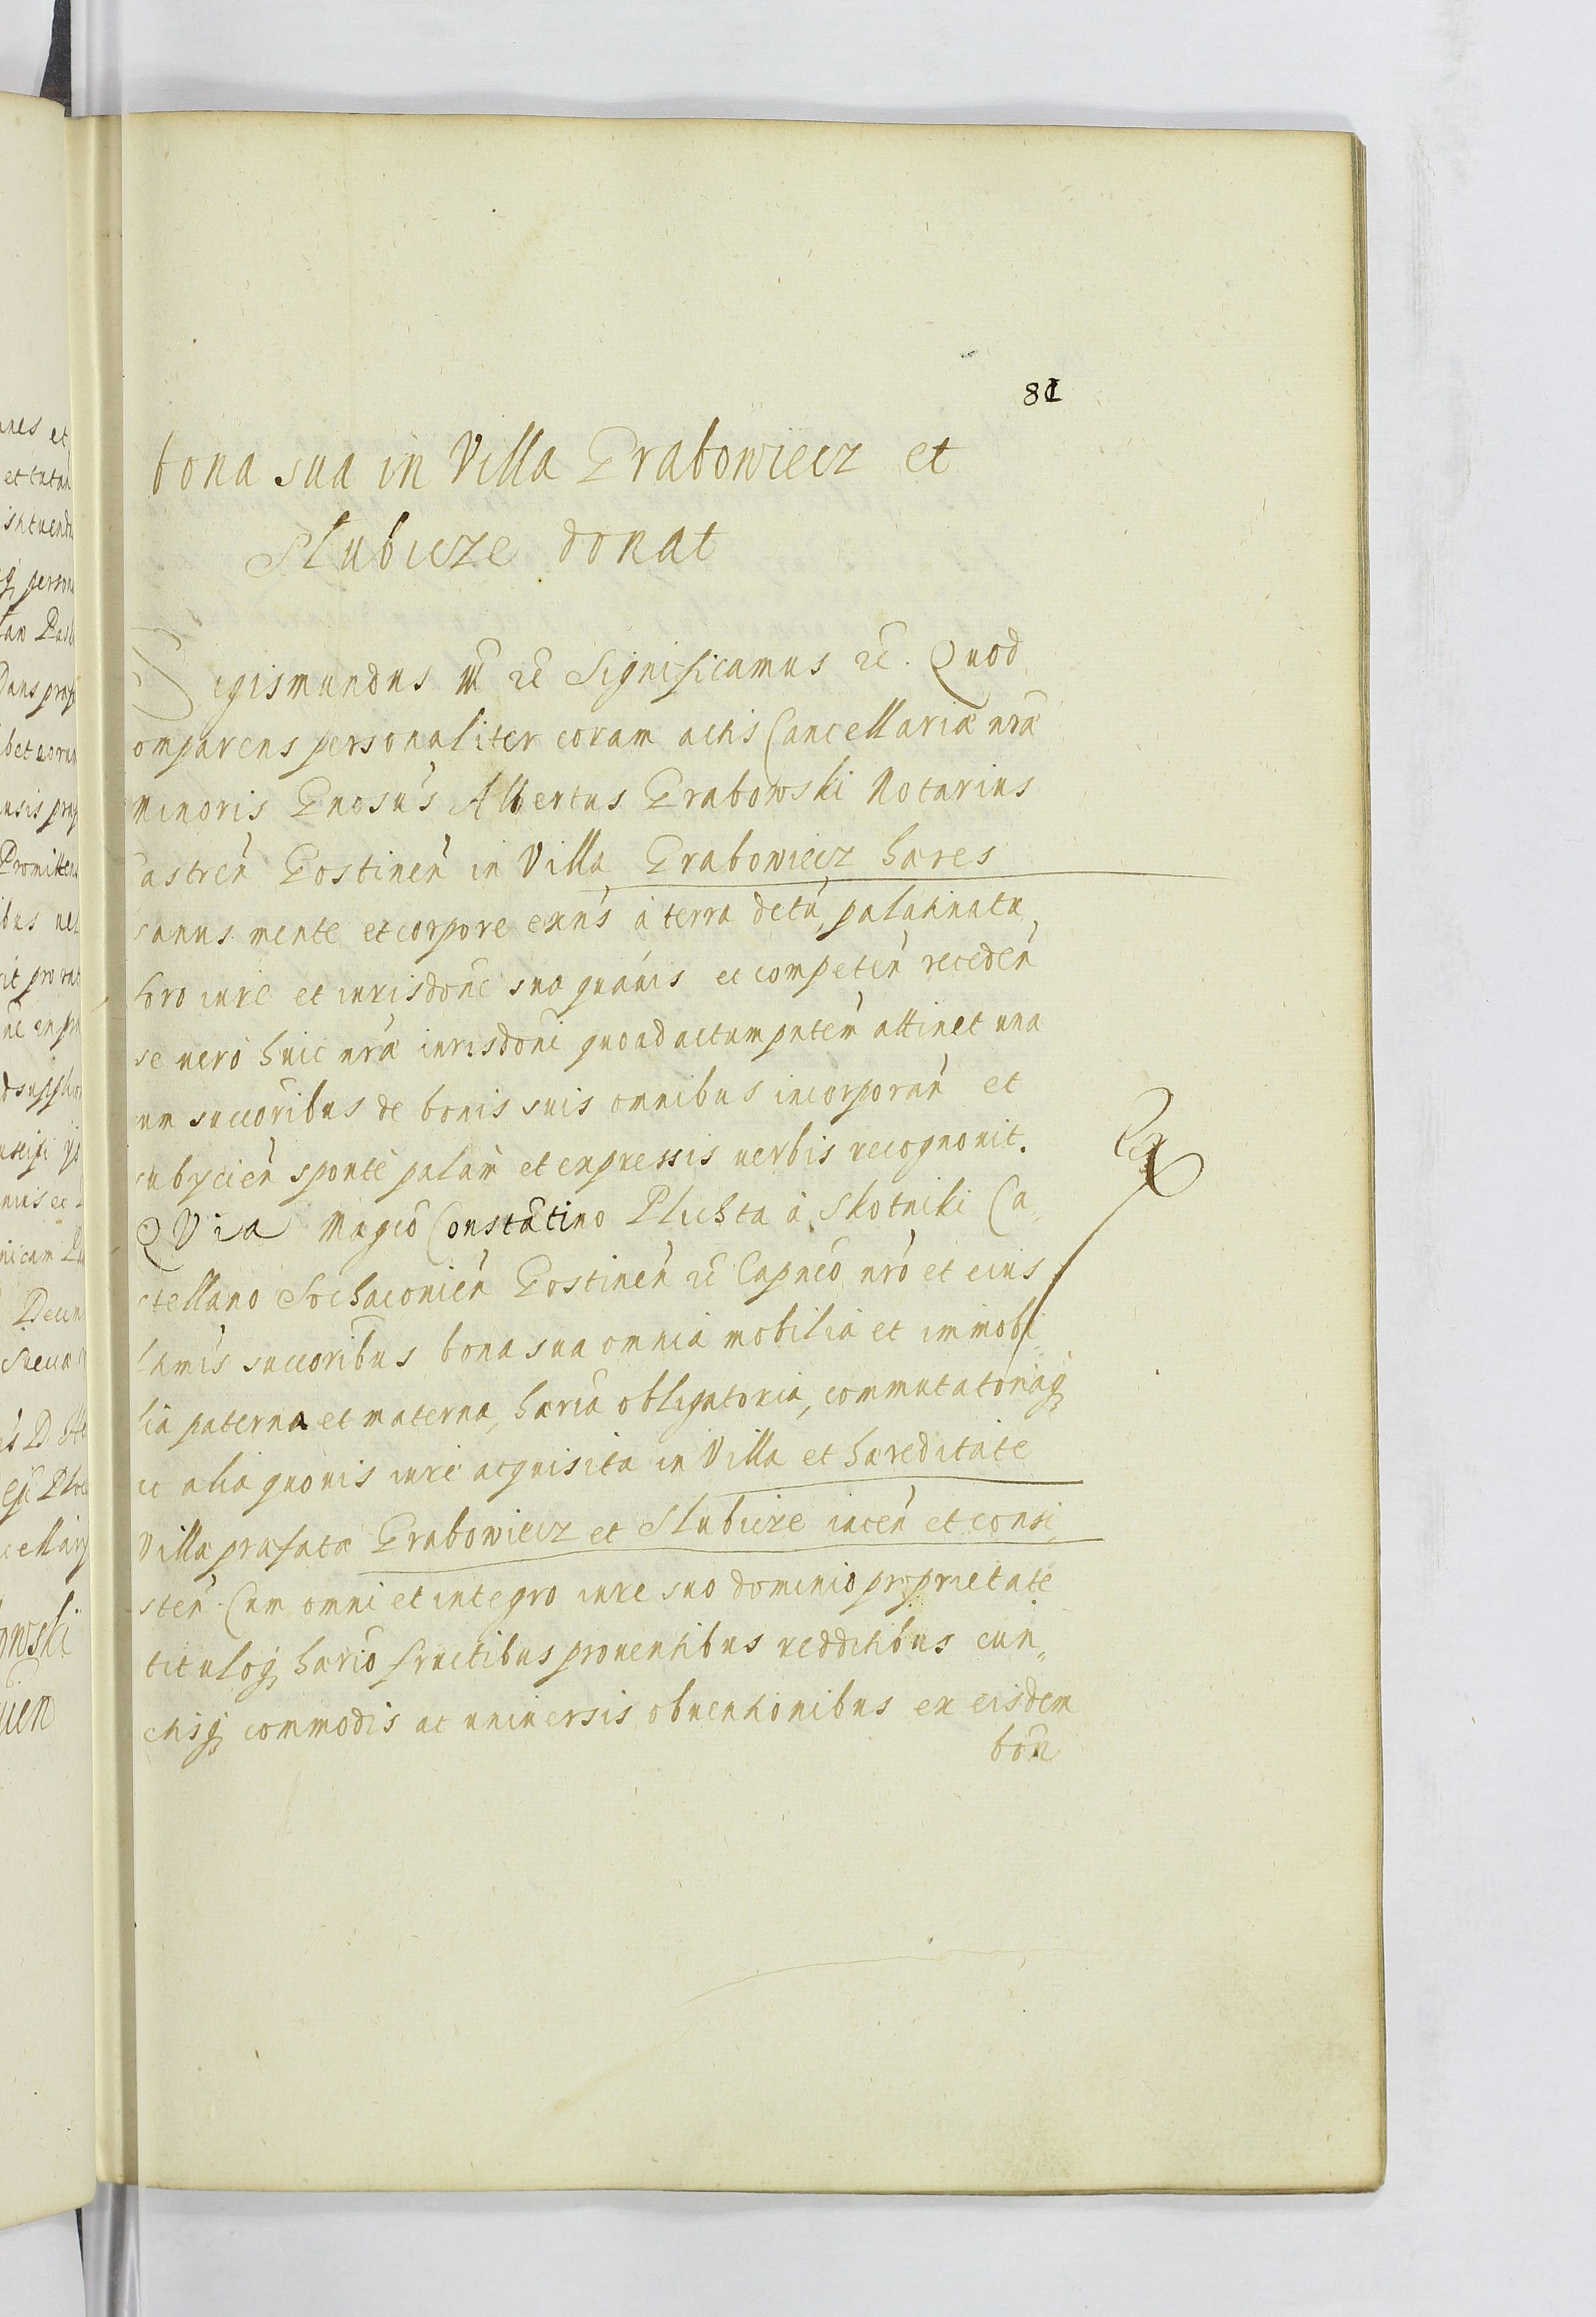 81
bona sua in Villa Grabowiecz et
Slubicze donat
Sigismundus III rc̃ Significamus rc̃. Quod
omparens personaliter coram actis Cancellariæ nr̃æ
Minoris Gnosus Albertus Grabowski Notarius
Castren̄ Gostinen̄ in Villa Grabowiecz hæres
sanus mente et corpore exn̄s à terra dc̃tu, palatinatu
foro iure et iurisdon̄e sua quauis et competen̄ receden̄
se uero huic nr̃æ iurisdon̄i quoad actum pn̄tem attinet una
cum succorib̃us de bonis suis omnibus incorporan̄ et
subÿcien̄ sponte palam et expressis uerbis recognouit.
QVia Mag̃co Constãtino Plichta à Skotniki Ca„
stellano Sochaczouien̄ Gostinen̄ rc̃ Capneo nr̃o et eius
l̃tmis succorib̃us bona sua omnia mobilia et immobi„
lia paterna et materna, hær̃ia obligatoria, commutatoriaq́
ac alia quouis iure acquisita in Villa et hæreditate
Villæ præfatæ Grabowiecz et Slubicze iacen̄ et consi„
sten̄. Cum omni et integro iure suo dominio proprietate
tituloq́ hær̃io fructibus prouentibus redditibus cun„
ctisq́ commodis ac uniuersis obuentionibus ex eisdem
bon̄